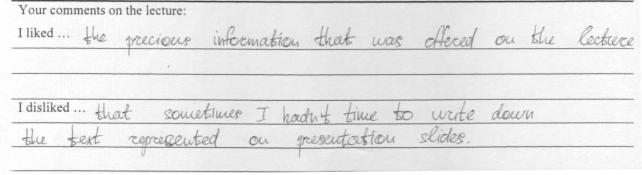 Your comments on the lecture:
I liked ... the precious information that was offered on the lecture
I disliked ... that sometimes I hadn't time to write down
the text represented on presentation slides.